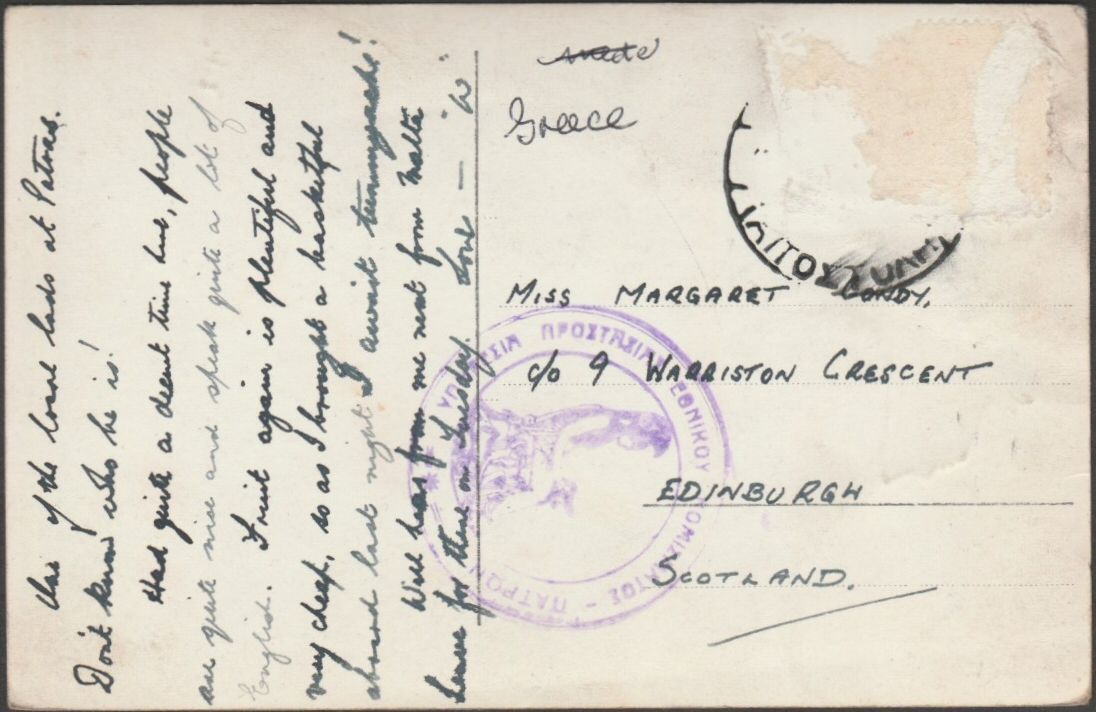 One of the local lads at Patras.
Don't know who he is!
Had quite a decent time here, people
are quite nice and speak quite a lot of
English. Fruit again is plentiful and
very cheap, so as I brought a basketful
aboard last night I anvist tummyaches!
Will hear from me next from Malta
Leave for there on Tuesday. Love — "W"
Greece
MISS MARGARET CONDY,
c/o 9 WARRISTON CRESCENT
EDINBURGH
SCOTLAND.
ΥΠΗΡΕΣΙΑ ΠΡΟΣΤΑΣΙΑΣ ΕΘΝΙΚΟΥ ΝΟΜΙΣΜΑΤΟΣ - ΠΑΤΡΩΝ